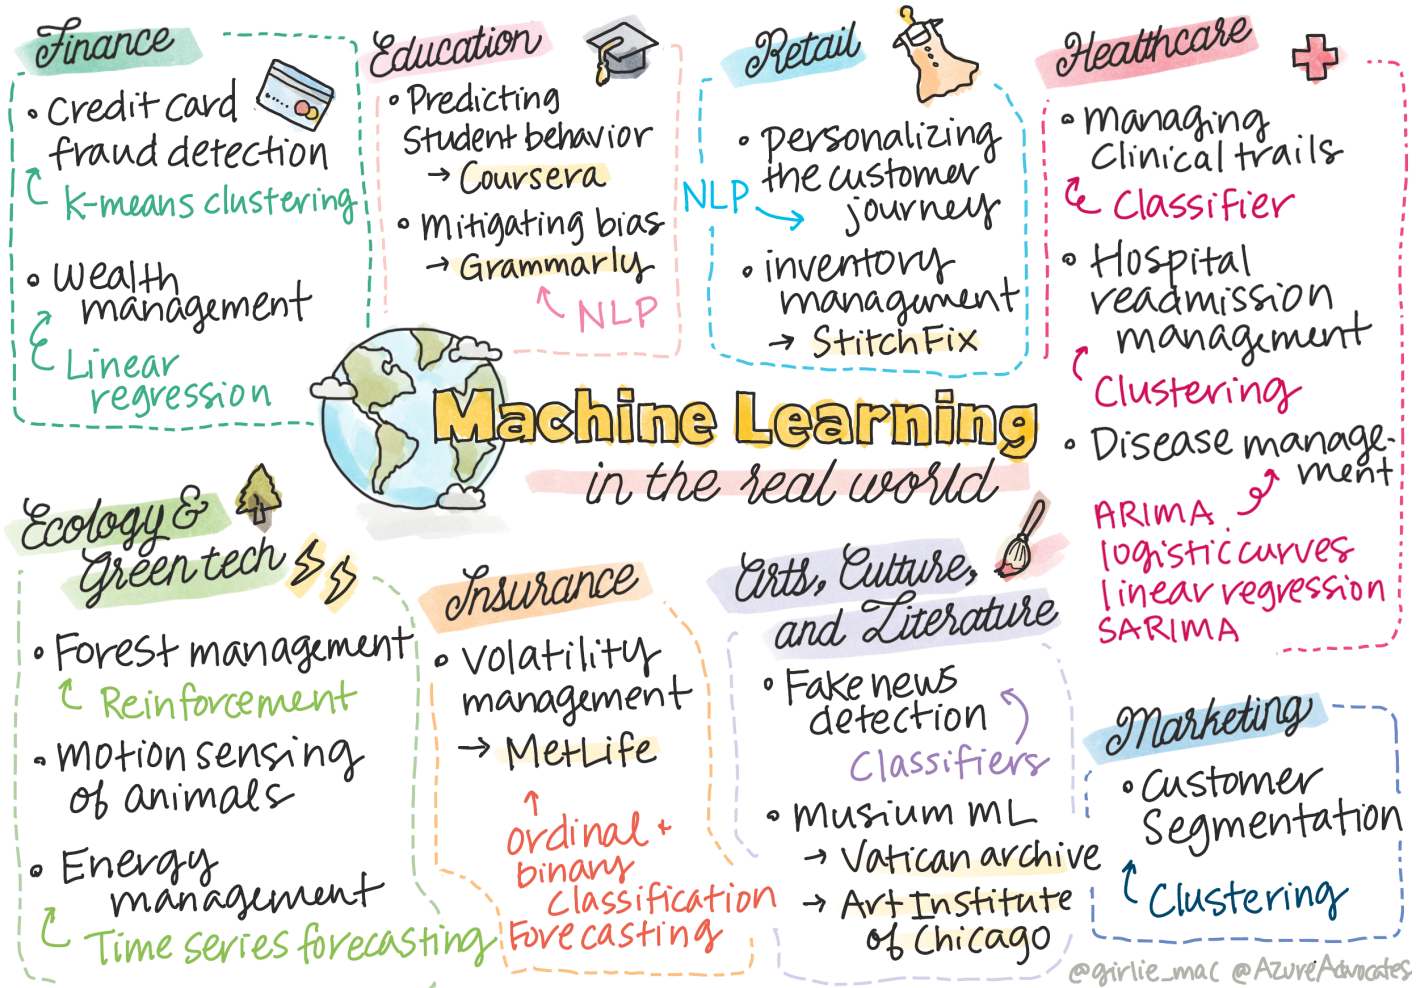 Finance
• Credit card
fraud detection
K-means clustering
• Wealth
management
Linear
regression
Education
• Predicting
Student behavior
→ Coursera
• Mitigating bias
→ Grammarly
NLP
Retail
• personalizing
the customer
journey
NLP
• inventory
managument
→ StitchFix
Healthcare
• managing
Clinical trails
Classifier
• Hospital
readmission
management
Clustering
• Disease manage-
ment
ARIMA
logistic curves
linear regression
SARIMA
Machine Learning
in the real world
Ecology &
Green tech
• Forest management
Reinforcement
• motion sensing
of animals
• Energy
management
Time series forecasting
Insurance
• Volatility
management
→ MetLife
ordinal +
binary
classification
Forecasting
Arts, Culture,
and Literature
• Fake news
detection
Classifiers
• Musium ML
→ Vatican archive
→ Art Institute
of Chicago
Marketing
• Customer
Segmentation
Clustering
@girlie_mac @AzureAdvocates